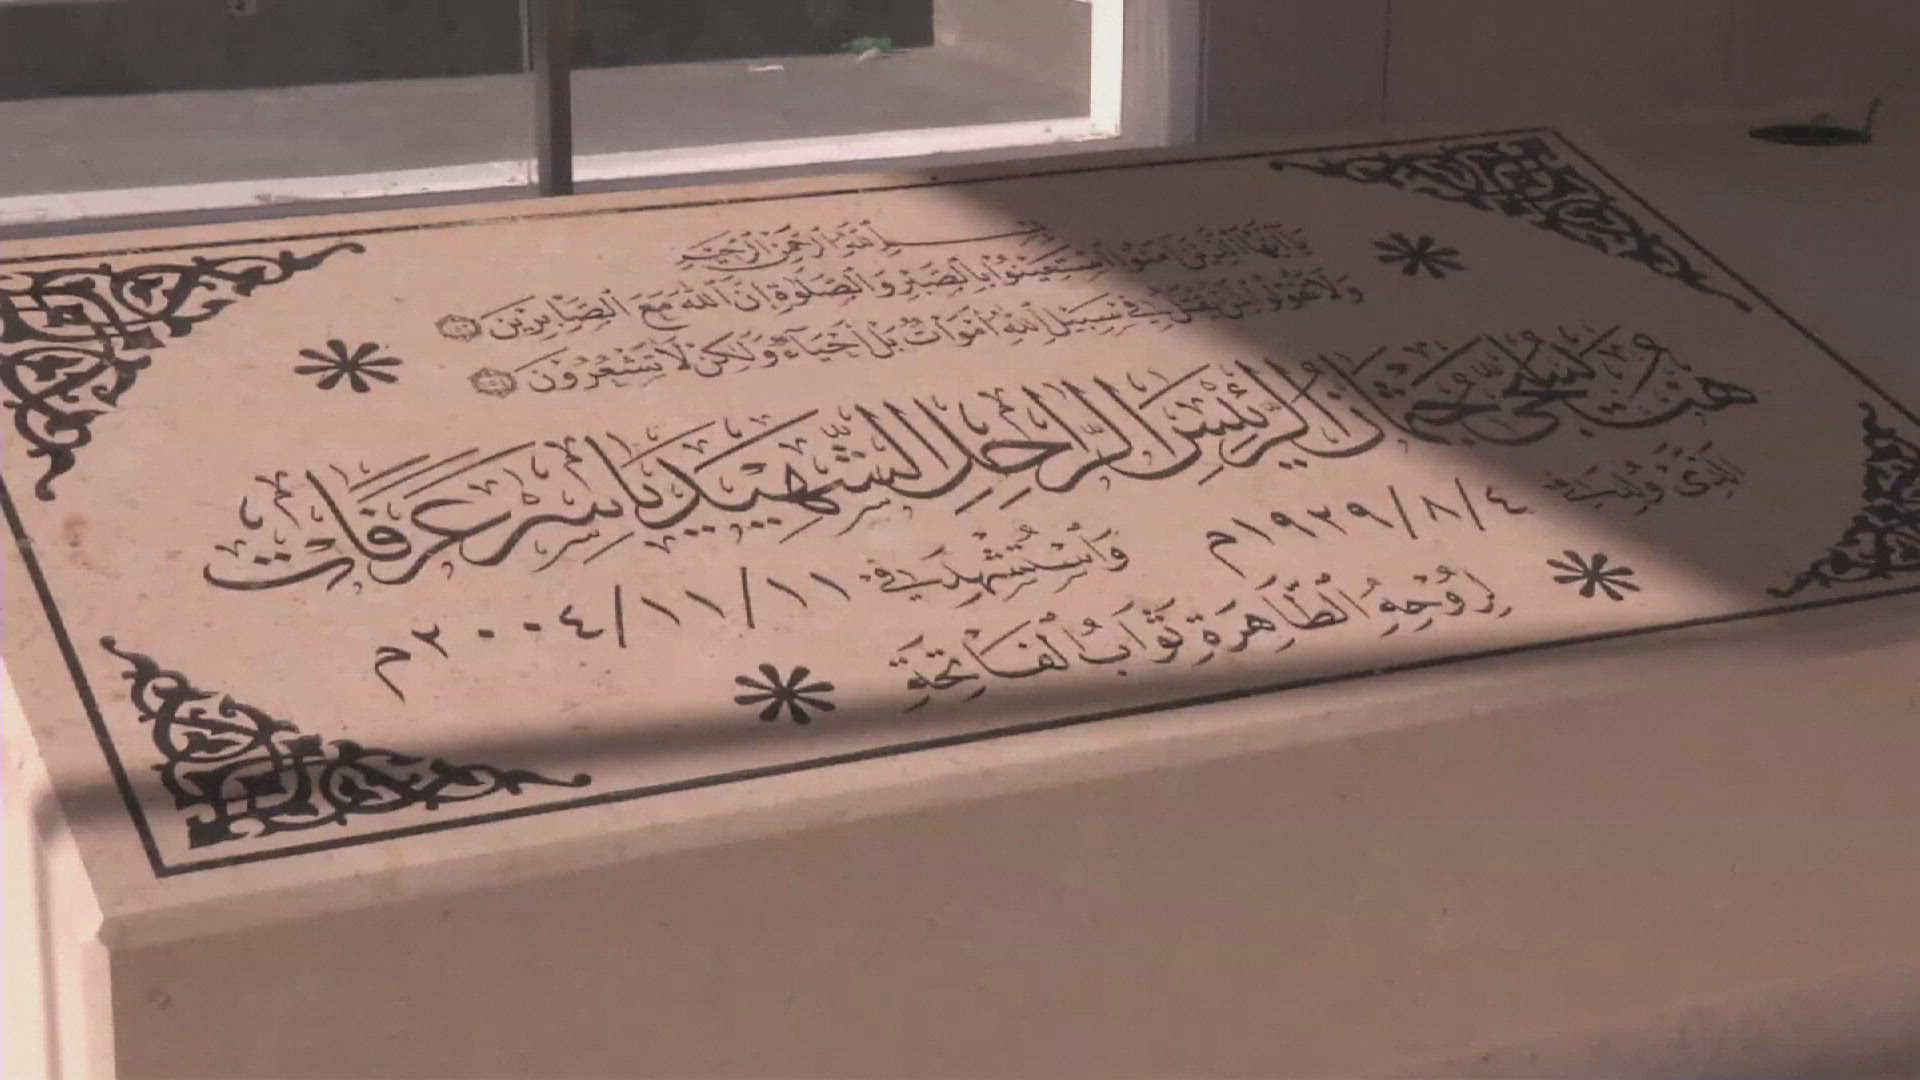 بِسْمِ اللَّهِ الرَّحْمَنِ الرَّحِيمِ
يَا أَيُّهَا الَّذِينَ آمَنُوا اسْتَعِينُوا بِالصَّبْرِ وَالصَّلَاةِ إِنَّ اللَّهَ مَعَ الصَّابِرِينَ
وَلَا تَقُولُوا لِمَنْ يُقْتَلُ فِي سَبِيلِ اللَّهِ أَمْوَاتٌ بَلْ أَحْيَاءٌ وَلَكِنْ لَا تَشْعُرُونَ
هُنَا سُجِّيَ جُثْمَانُ الرَّئِيسِ الرَّاحِلِ الشَّهِيدِ يَاسِرِ عَرَفَات
الَّذِي وُلِدَ فِي ٤/٨/١٩٢٩م وَاسْتُشْهِدَ فِي ١١/١١/٢٠٠٤م
لِرُوحِهِ الطَّاهِرَةِ ثَوَابُ الْفَاتِحَةِ